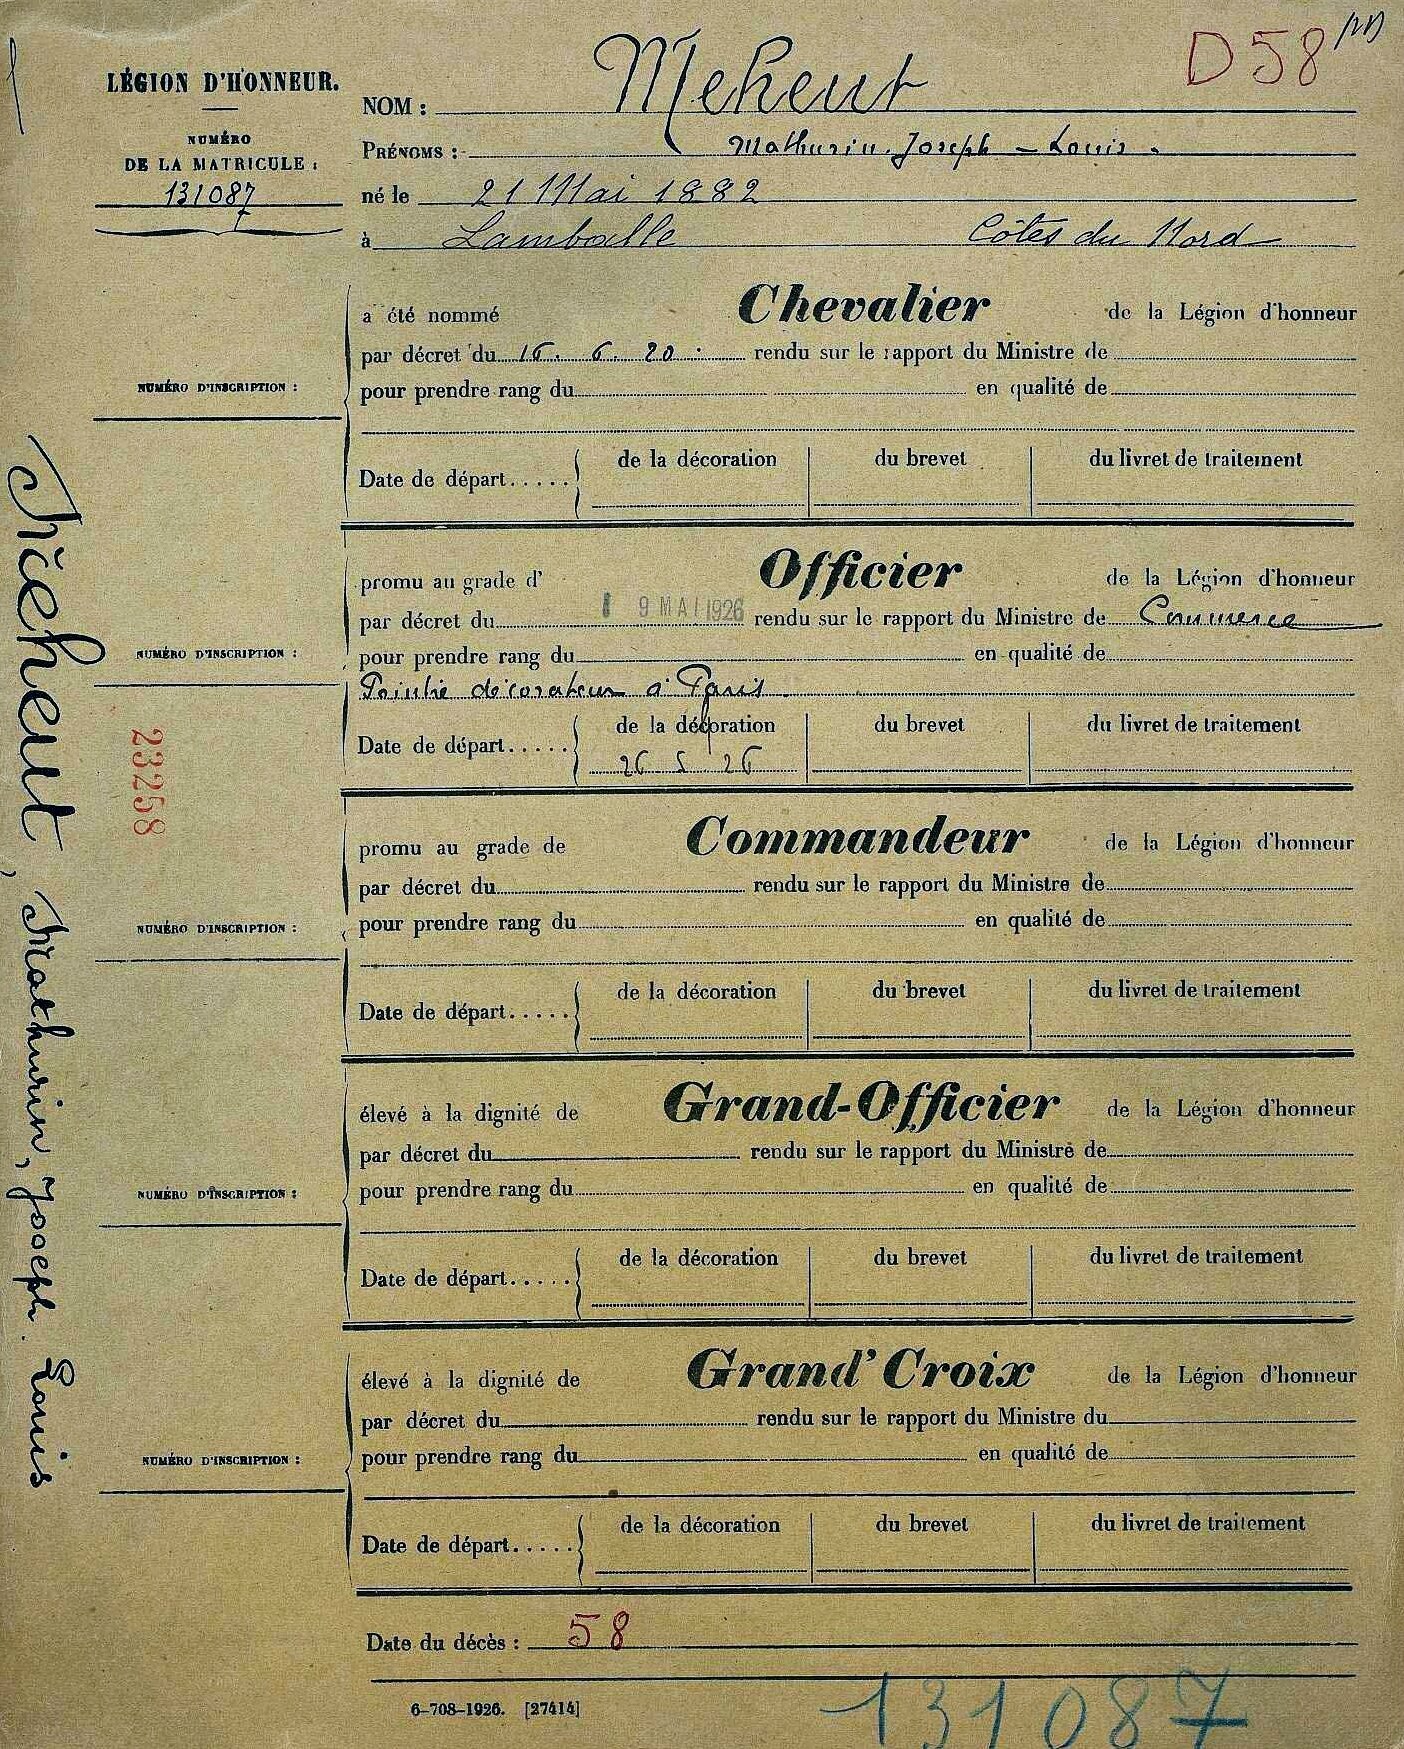 D 58
LÉGION D'HONNEUR.
NUMÉRO
DE LA MATRICULE :
131087
NOM : Meheut
PRÉNOMS : Mathurin. Joseph - Louis.
né le 21 Mai 1882
à Lamballe Côtes du Nord
a été nommé Chevalier de la Légion d'honneur
par décret du 16. 6. 20. rendu sur le rapport du Ministre de
NUMÉRO D'INSCRIPTION :
pour prendre rang du en qualité de
Date de départ..... de la décoration du brevet du livret de traitement
promu au grade d' Officier de la Légion d'honneur
par décret du 19 MAI 1926 rendu sur le rapport du Ministre de Commerce
NUMÉRO D'INSCRIPTION :
pour prendre rang du en qualité de
Peintre décorateur à Paris
Date de départ..... de la décoration du brevet du livret de traitement
26 5 26
23258
promu au grade de Commandeur de la Légion d'honneur
par décret du rendu sur le rapport du Ministre de
NUMÉRO D'INSCRIPTION :
pour prendre rang du en qualité de
Date de départ..... de la décoration du brevet du livret de traitement
élevé à la dignité de Grand-Officier de la Légion d'honneur
par décret du rendu sur le rapport du Ministre de
NUMÉRO D'INSCRIPTION :
pour prendre rang du en qualité de
Date de départ..... de la décoration du brevet du livret de traitement
élevé à la dignité de Grand'Croix de la Légion d'honneur
par décret du rendu sur le rapport du Ministre du
NUMÉRO D'INSCRIPTION :
pour prendre rang du en qualité de
Date de départ..... de la décoration du brevet du livret de traitement
Date du décès : 58
6-708-1926. [27414]
131087
Méheut, Mathurin, Joseph. Louis